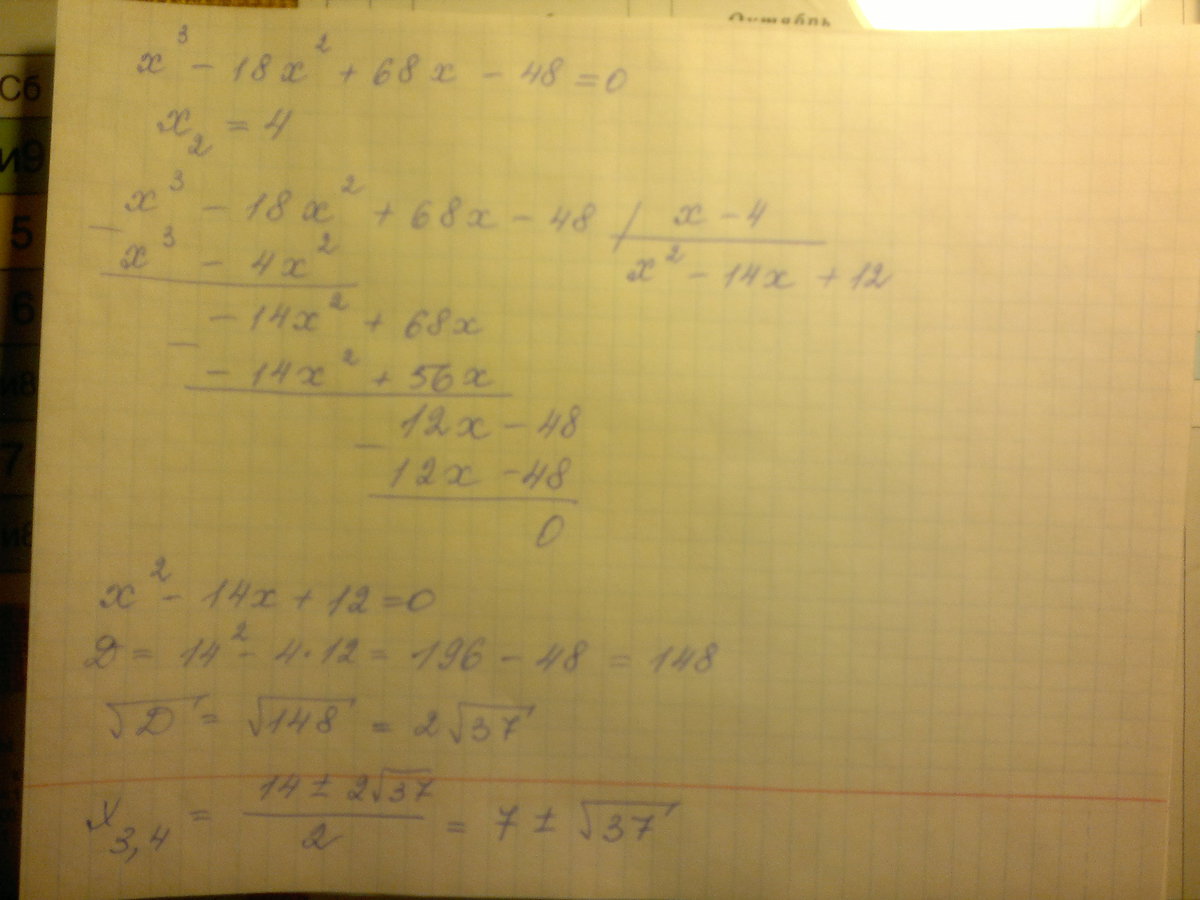 Октябрь
Сб
и9
5
6
и8
7
x³ - 18x² + 68x - 48 = 0
x₂ = 4
x³ - 18x² + 68x - 48 | x - 4
− x³ - 4x² x² - 14x + 12
- 14x² + 68x
− - 14x² + 56x
12x - 48
− 12x - 48
0
x² - 14x + 12 = 0
D = 14² - 4·12 = 196 - 48 = 148
√D = √148 = 2√37
x₃,₄ = (14 ± 2√37)/2 = 7 ± √37